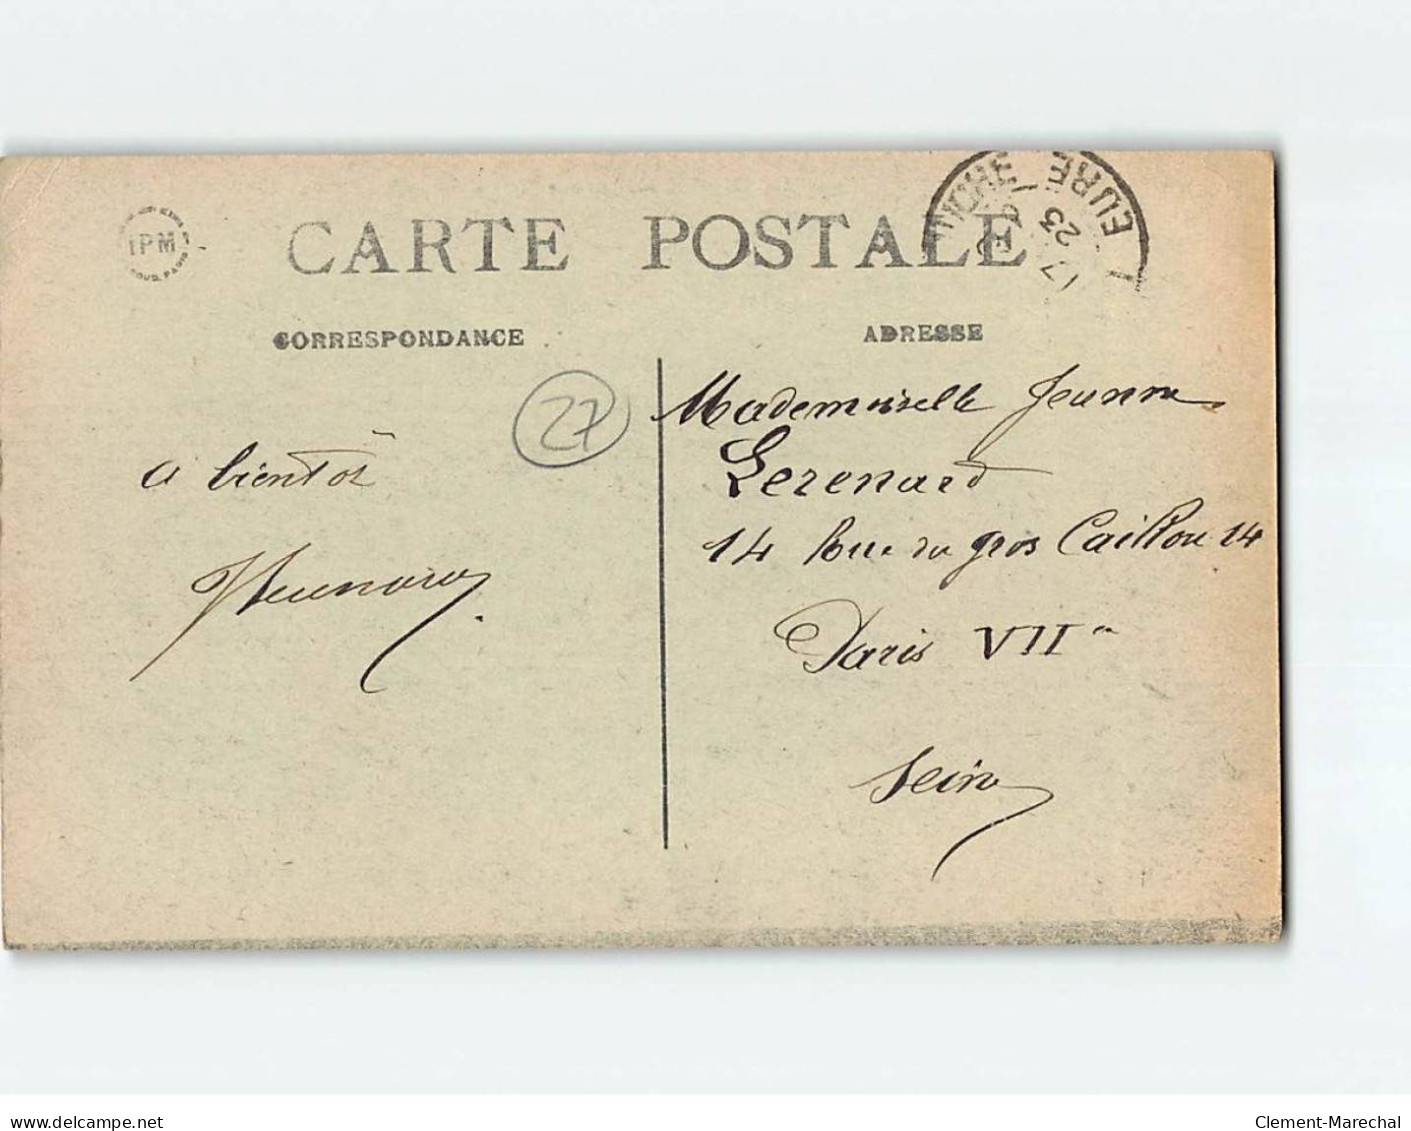 IPM
CARTE POSTALE
EURE
23
CORRESPONDANCE
ADRESSE
27
a bientôt
Mademoiselle Jeanne
Lerenard
14 Rue du gros Caillou 14
Paris VII
Seine
delcampe.net
Clement-Marechal